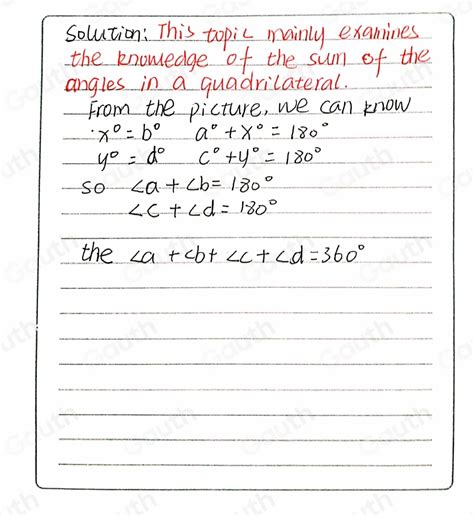 Solution: This topic mainly examines
the knowledge of the sum of the
angles in a quadrilateral.
From the picture, we can know
x° = b° a° + x° = 180°
y° = d° c° + y° = 180°
so ∠a + ∠b = 180°
∠c + ∠d = 180°
the ∠a + ∠b + ∠c + ∠d = 360°